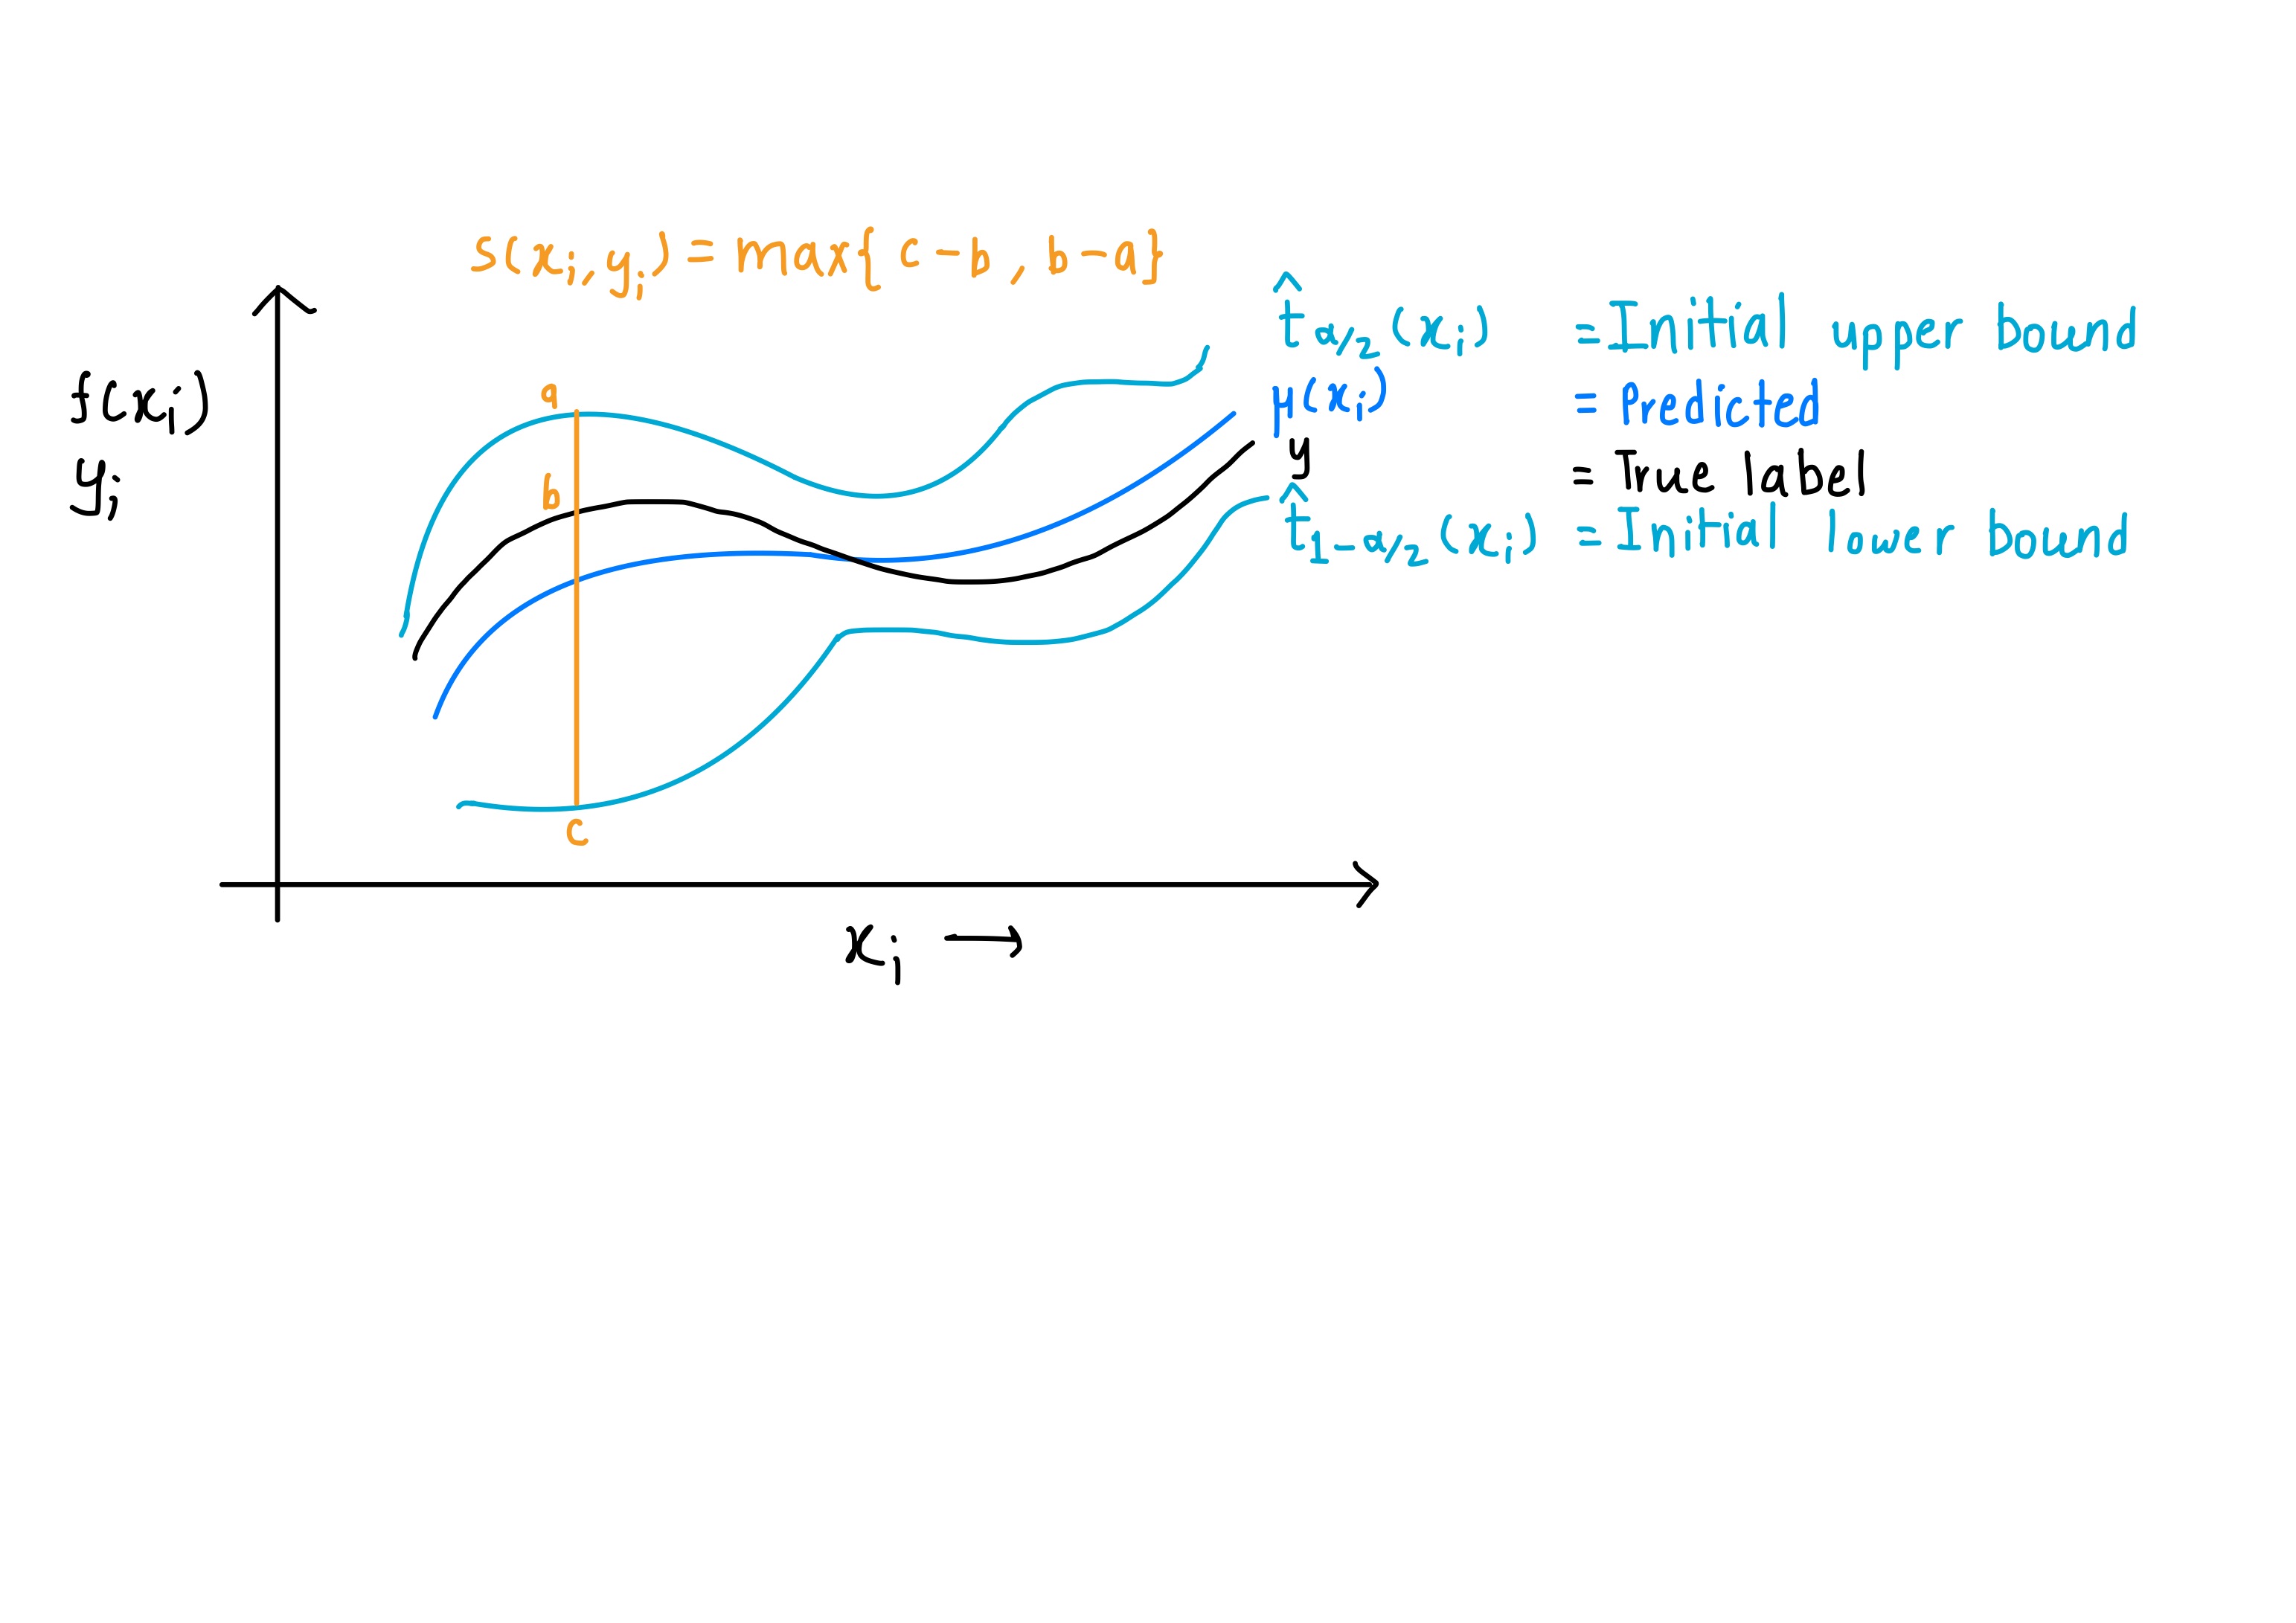 s(xᵢ, yᵢ) = max{ c - b , b - a}
t̂α/2 (xᵢ) = Initial upper bound
f(xᵢ)
μ(xᵢ) = Predicted
a
y = True label
yᵢ
b
t̂1-α/2 (xᵢ) = Initial lower bound
c
xᵢ →